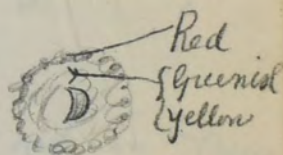 Red
Greenish
Yellow